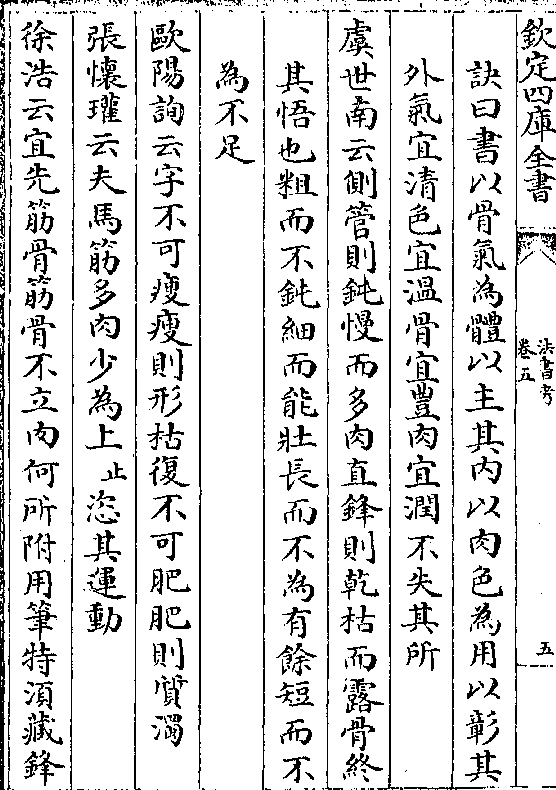 欽定四庫全書
法書考
卷五
五
訣曰書以骨氣為體以主其内以肉色為用以彰其
外氣宜清色宜溫骨宜豐肉宜潤不失其所
虞世南云側管則鈍慢而多肉直鋒則乾枯而露骨終
其悟也粗而不鈍細而能壯長而不為有餘短而不
為不足
歐陽詢云字不可瘦瘦則形枯復不可肥肥則質濁
張懷瓘云夫馬筋多肉少為上止恣其運動
徐浩云宜先筋骨筋骨不立肉何所附用筆特須藏鋒